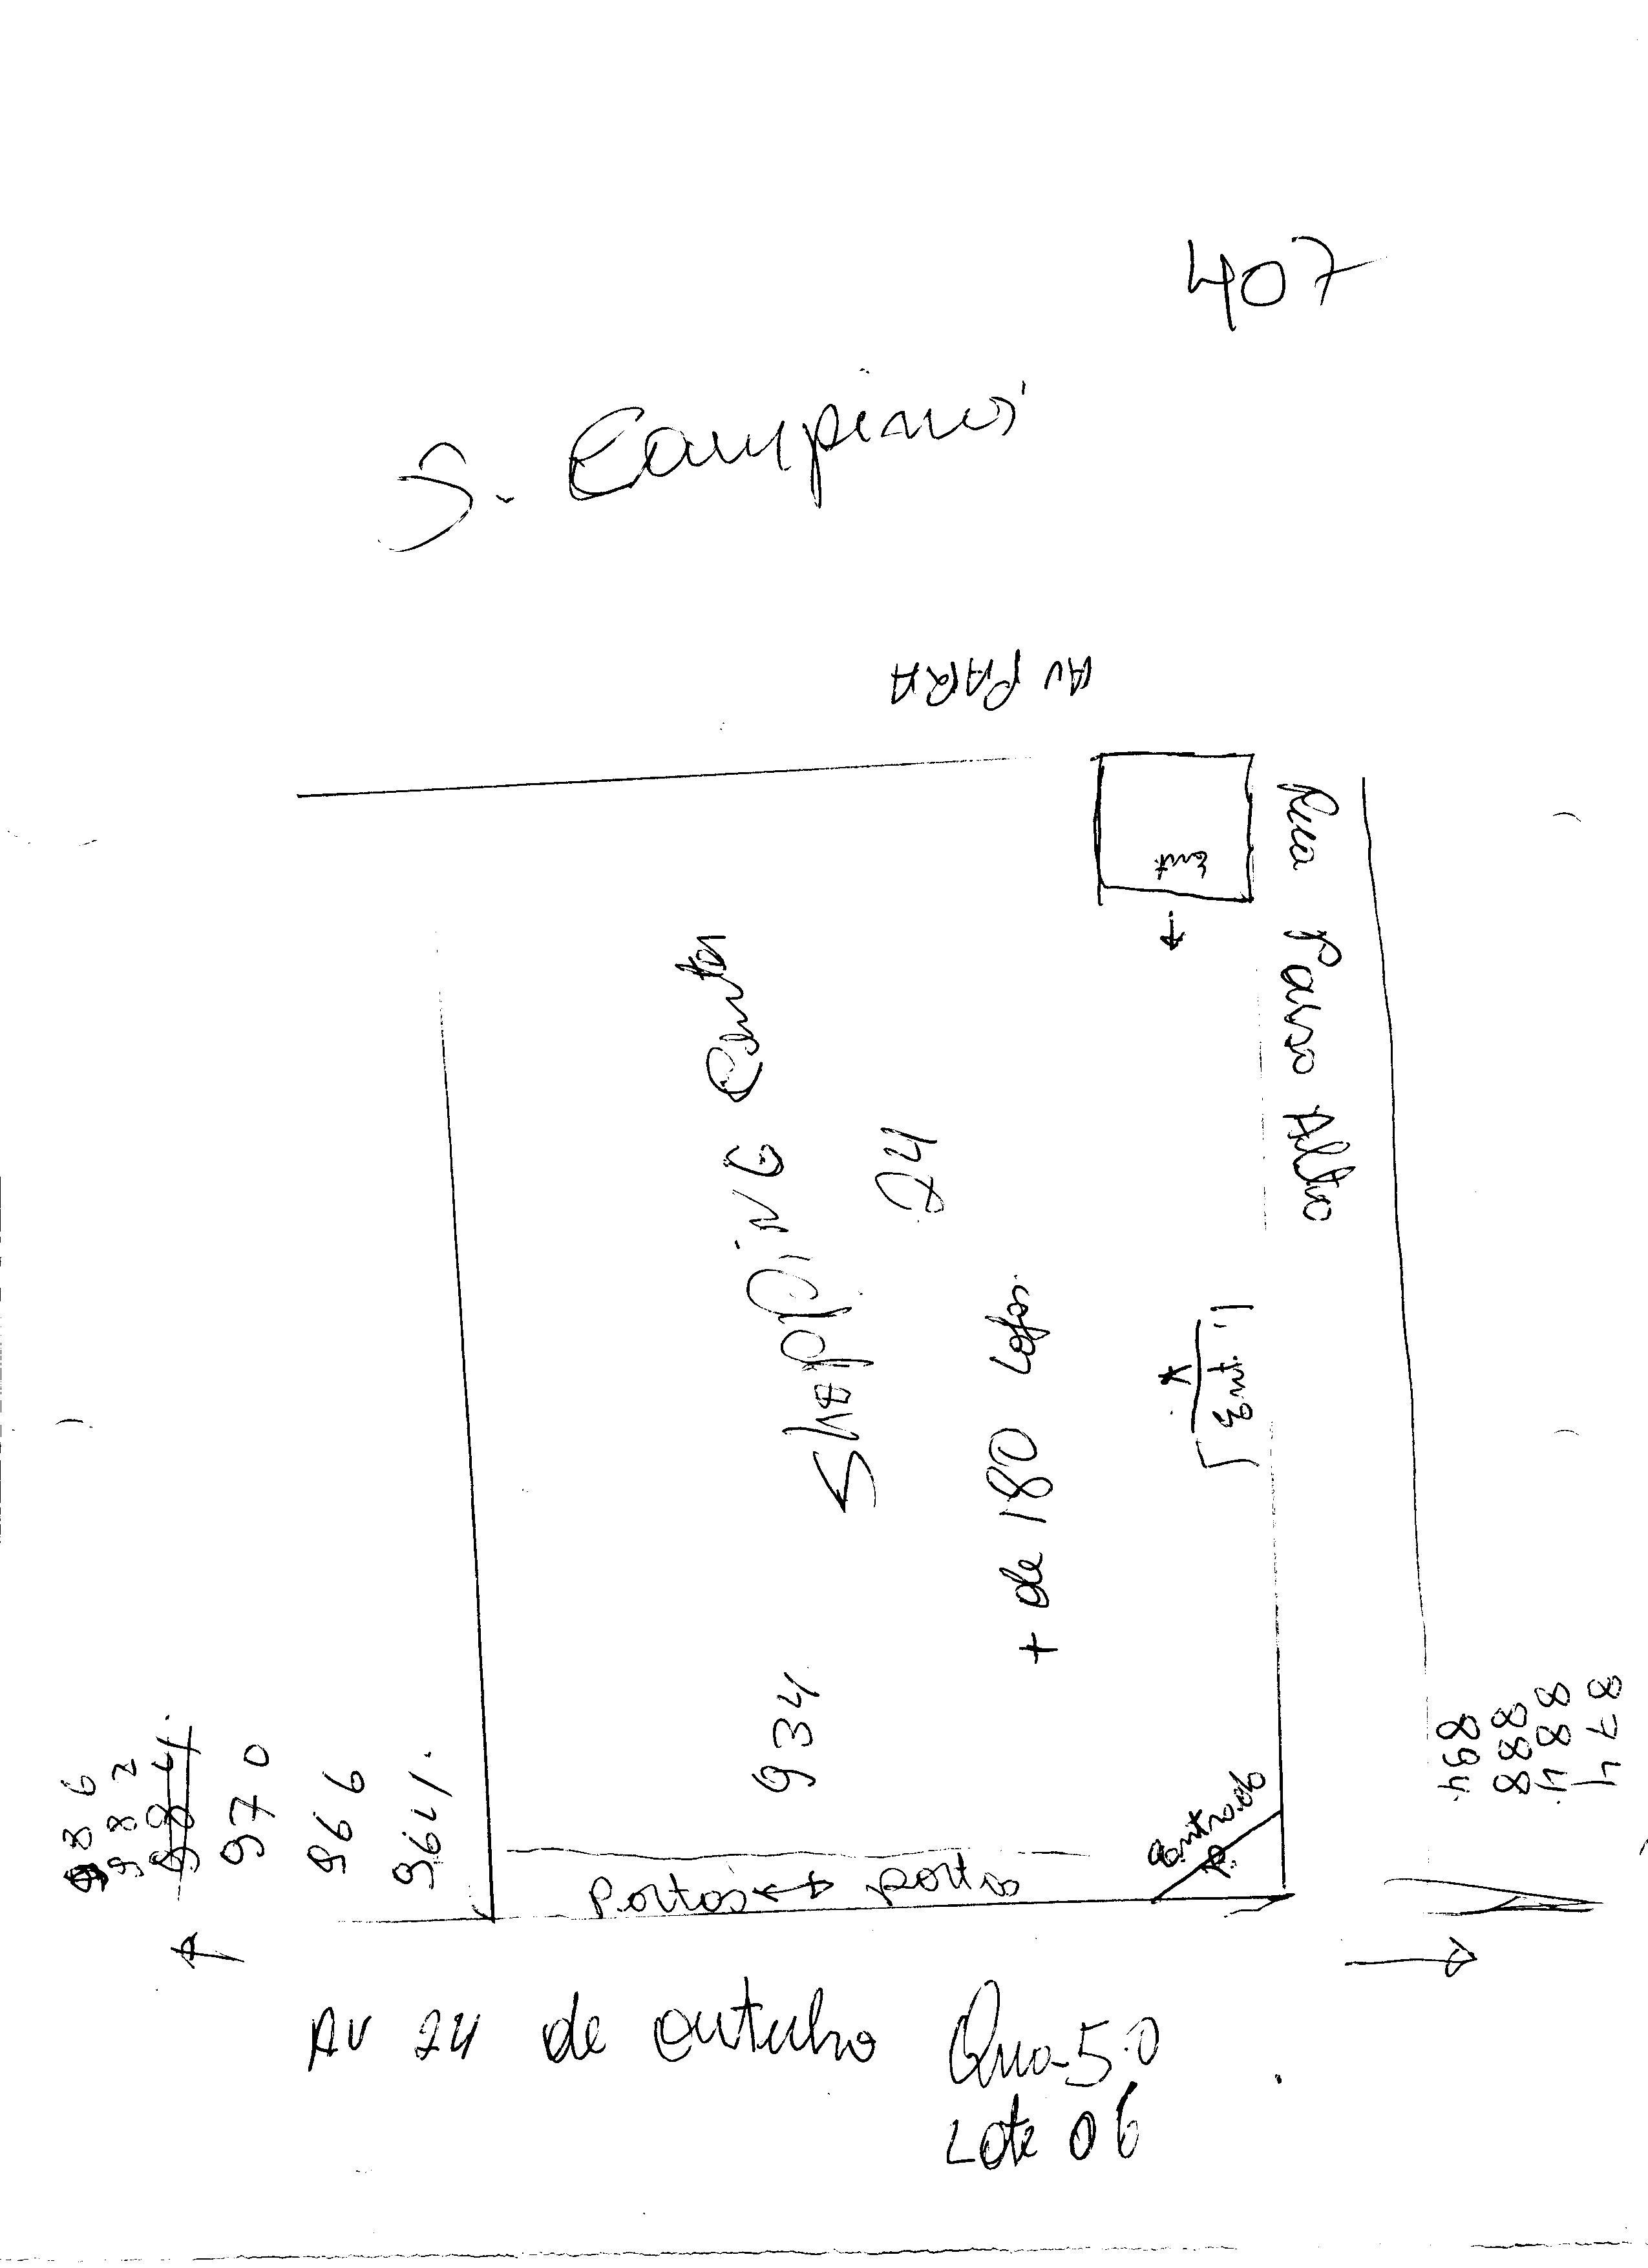 407
S. Campinas
AV PARA
Ent.
Rua Pouso Alto
Shopping Center
24
+ de 180 Lojas.
Ent. 1
934
986
982
984.
970
966
964.
894.
888
884.
874
Portas ↔ portas
Av 24 de outubro Qua-50
Lote 06